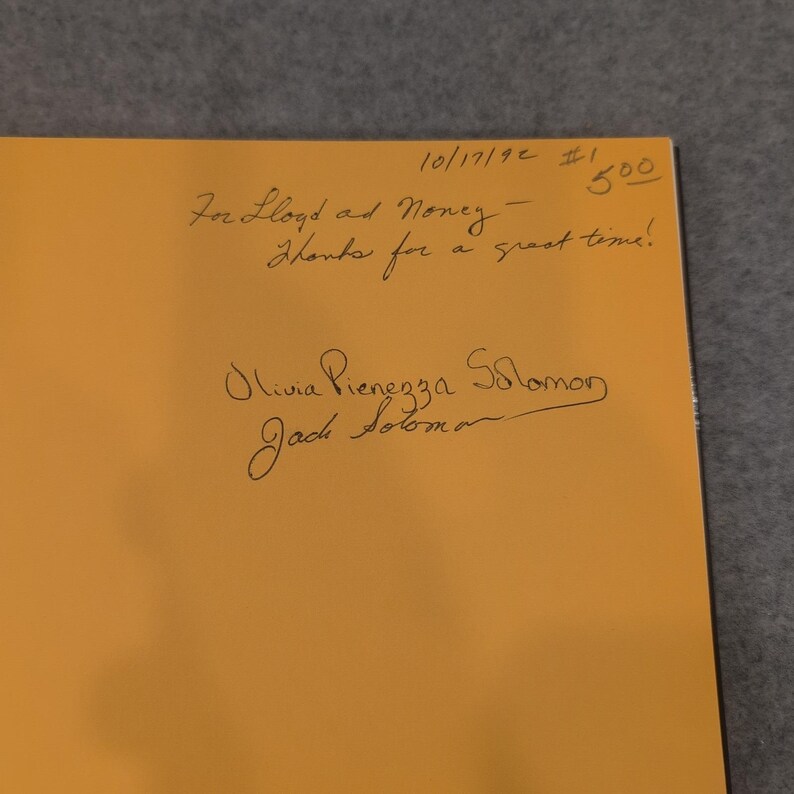 10/17/92 #1
5.00
For Lloyd ad Nancy —
Thanks for a great time!
Olivia Pienezza Solomon
Jack Solomon